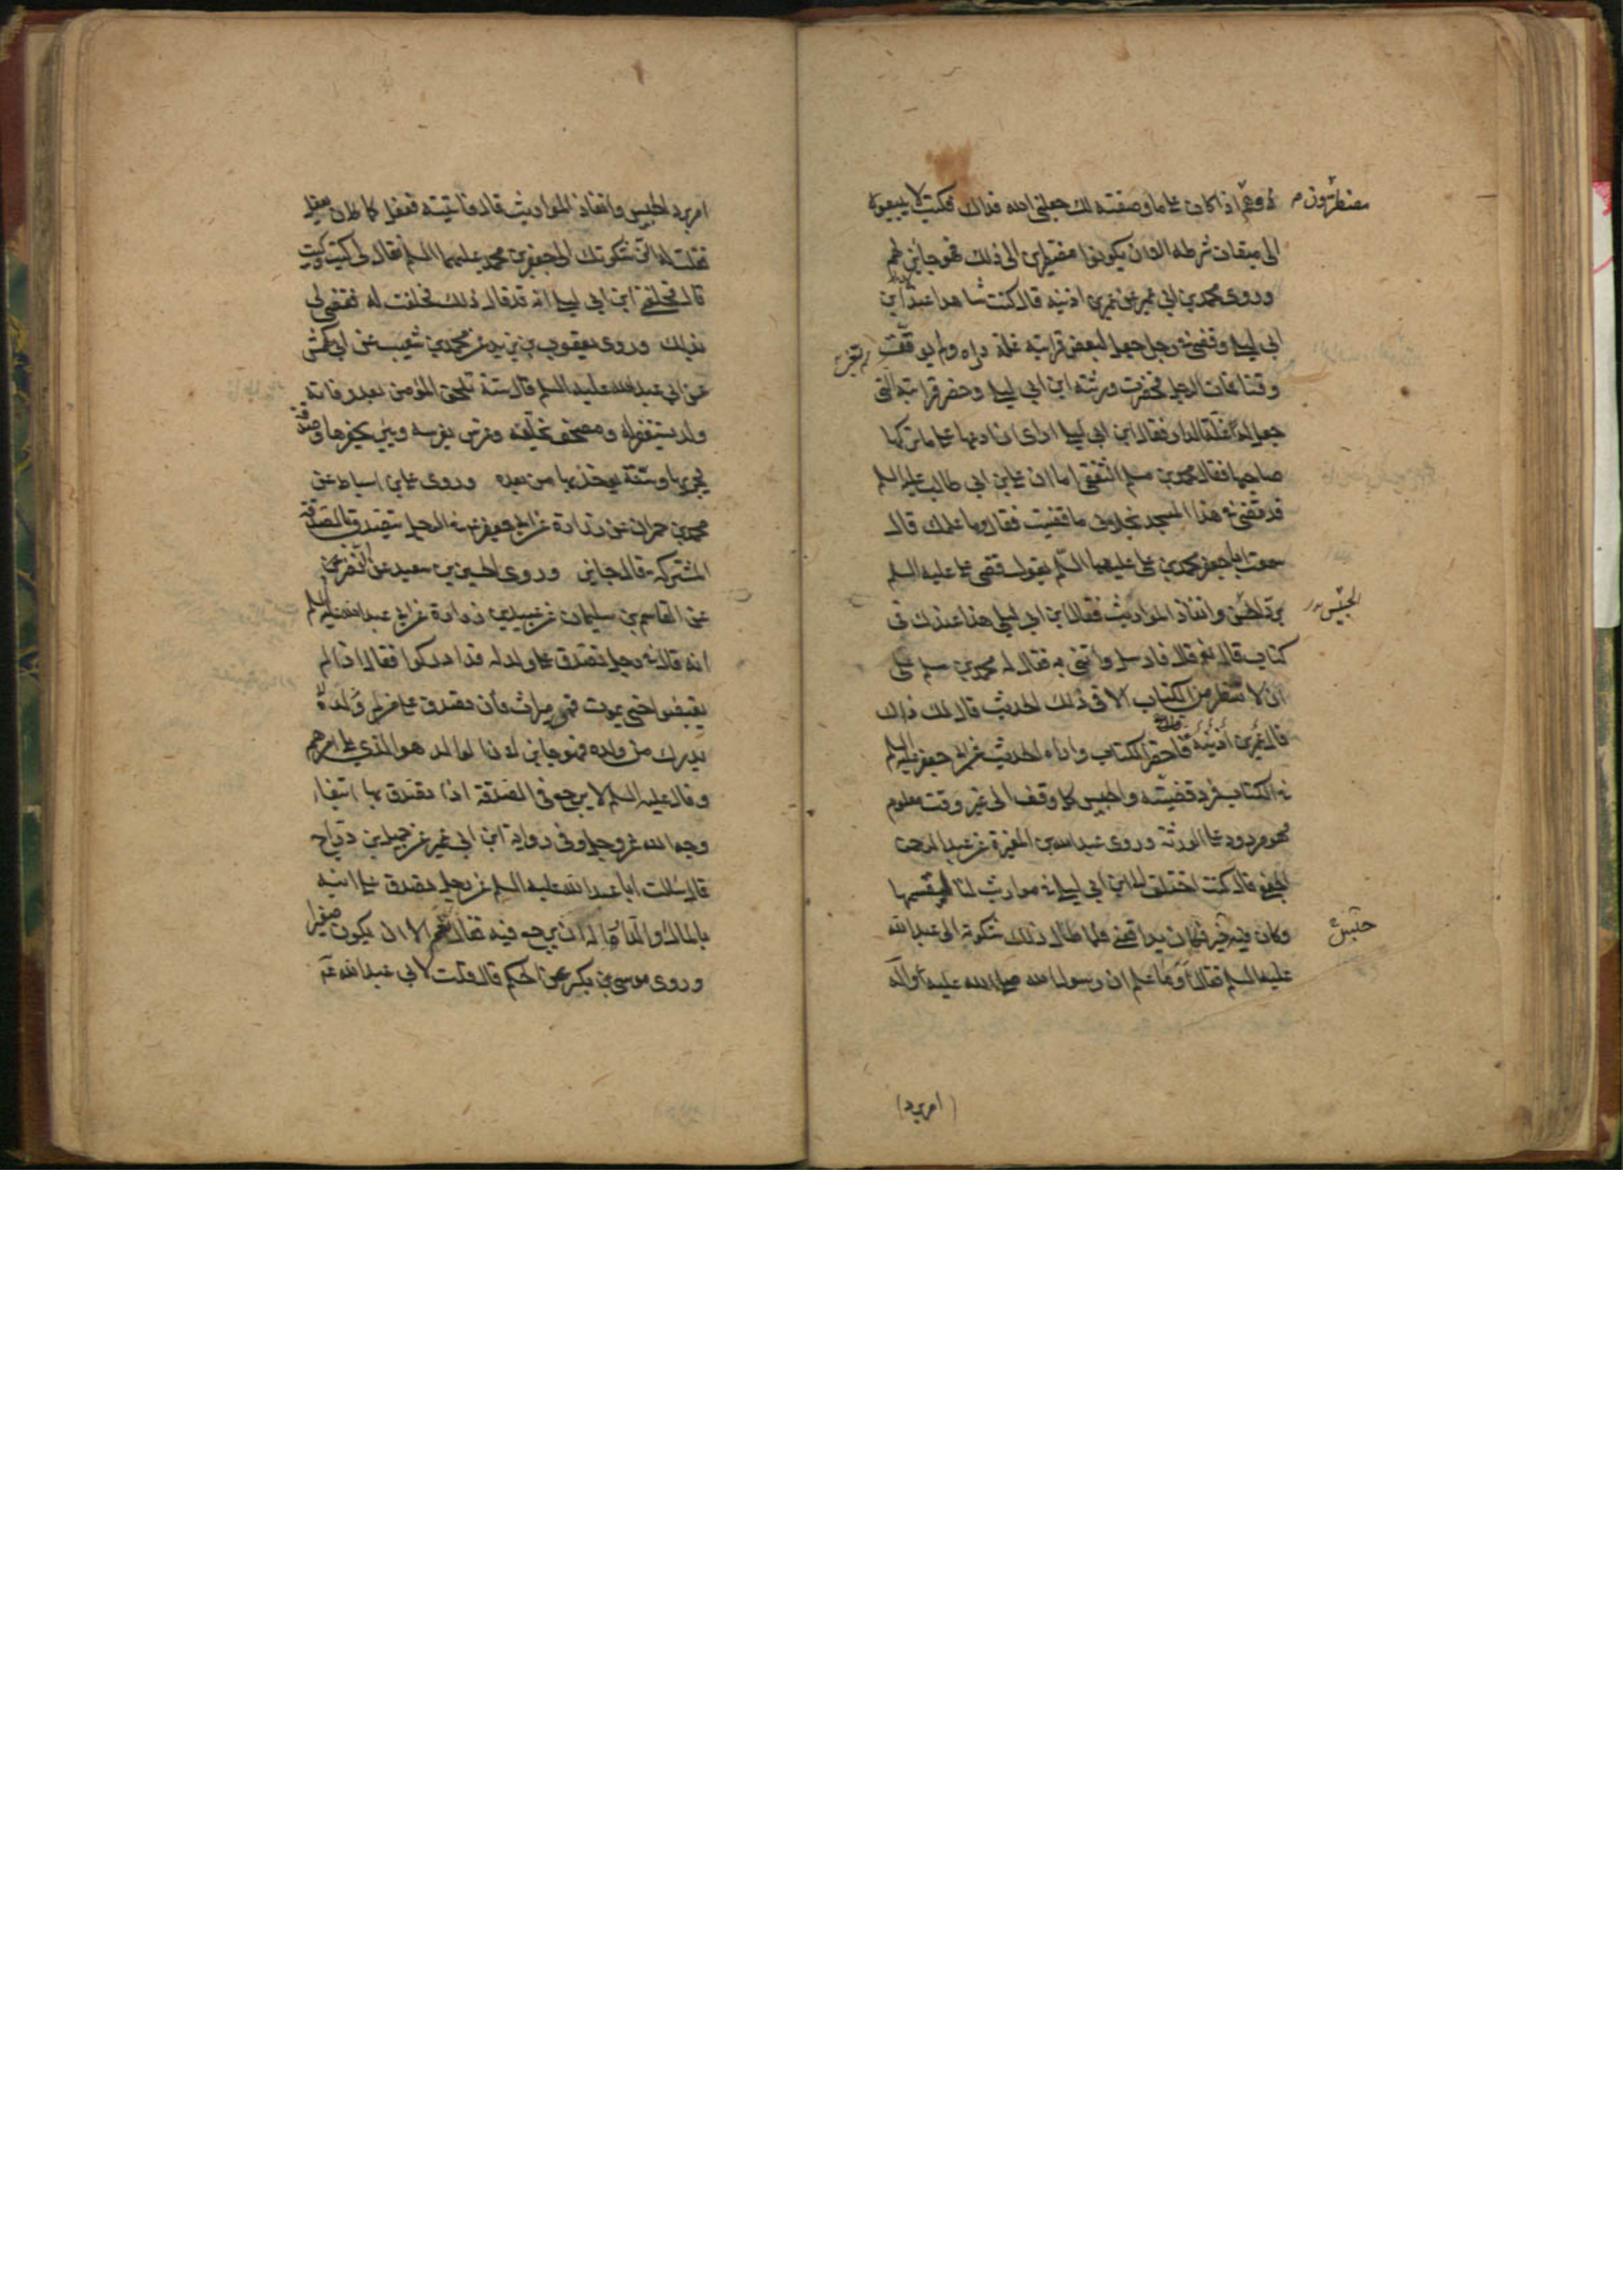 لا وهم اذا كان على ما وصفته لك جعلنى الله فداك فكتب لا يبيعوه
مضطرون م
الى ميقات شرطه الا ان يكونوا مضطرين الى ذلك فهو جايز لهم
وروى محمد بن ابي عمير عن عمر بن اذينه قال كنت شاهدا عند ابن
ابي ليلى وقضى في رجل جعل لبعض قرابته غلة داره ولم يوقت
وقتا فمات الرجل فحضرت ورثته ابن ابي ليلى وحضر قرابته الذى
جعل له غلة الدار فقال ابن ابي ليلى ارى ان ادعها على ما تركها
صاحبها فقال محمد بن مسلم الثقفى اما ان على بن ابي طالب عليه السلم
قد قضى في هذا المسجد بخلاف ما قضيت فقال وما علمك قال
سمعت ابا جعفر محمد بن على عليهما السلم يقول قضى على عليه السلم
برد الحبيس وانفاذ المواريث فقال ابن ابي ليلى هذا عندك فى
الحبيس
كتاب قال نعم قال فارسل وائتنى به فقال له محمد بن مسلم على
ان لا تنظر من الكتاب الا فى ذلك الحديث قال لك ذلك
قال عمر بن أذينة فاحضر الكتاب واراه الحديث عن ابي جعفر عليه السلم
في الكتاب فرد قضيته والحبيس كل وقف الى غير وقت معلوم
هو مردود على الورثة وروى عبد الله بن المغيرة عن عبد الرحمن
الجعفى قال كنت اختلف الى ابن ابي ليلى في مواريث لنا ليقسمها
وكان فيه حبيس فكان يدافعنى فلما طال ذلك شكوته الى عبد الله
حبيس
عليه السلم فقال أوما علم ان رسول الله صلى الله عليه وآله
(امر برد)
امر برد الحبيس وانفاذ المواريث قال فاتيته ففعل كما كان يفعل
فقلت له انى شكوتك الى جعفر بن محمد عليهما السلم فقال لى كيت وكيت
قال فحلفنى ابن ابي ليلى انه قد قال ذلك فحلفت له فقضى لى
بذلك وروى يعقوب بن يزيد عن محمد بن شعيب عن ابي كهمش
عن ابي عبد الله عليه السلم قال ستة تلحق المؤمن بعد وفاته
ولد يستغفر له ومصحف يخلفه وغرس يغرسه وبئر يحفرها وصدقة
يجريها وسنة يؤخذ بها من بعده وروى على بن اسباط عن
محمد بن حمران عن زرارة عن ابي جعفر ع في الرجل يتصدق بالصدقة
المشتركة قال جايز وروى الحسين بن سعيد عن النضر
عن القاسم بن سليمان عن عبيد بن زرارة عن ابي عبد الله عليه السلم
انه قال في رجل تصدق على ولد له قد ادركوا فقال اذا لم
يقبضوا حتى يموت فهو ميراث فان تصدق على من لم
يدرك من ولده فهو جايز لان الوالد هو الذي يلى امرهم
وقال عليه السلم لا يرجع فى الصدقة اذا تصدق بها ابتغاء
وجه الله عز وجل وفى رواية ابن ابي عمير عن جميل بن دراج
قال سئلت ابا عبد الله عليه السلم عن رجل تصدق على ابنه
بالمال والدار أله ان يرجع فيه فقال نعم الا ان يكون صغيرا
وروى موسى بن بكر عن الحكم قال قلت لابي عبد الله ع